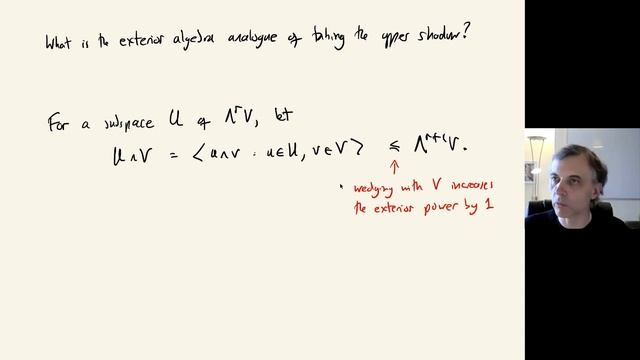 What is the exterior algebra analogue of taking the upper shadow?
For a subspace U of Λ^r V, let
U ∧ V = ⟨u ∧ v : u ∈ U, v ∈ V⟩ ⩽ Λ^{r+1} V.
↑
wedging with V increases
the exterior power by 1